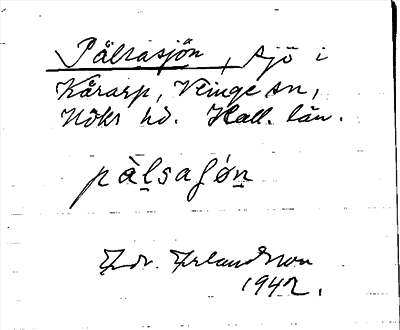 Pålsasjön, sjö i
Kårarp, Veinge sn,
Höks hd. Hall. län.
pàlsaʃön
Edv. Erlandsson
1942.